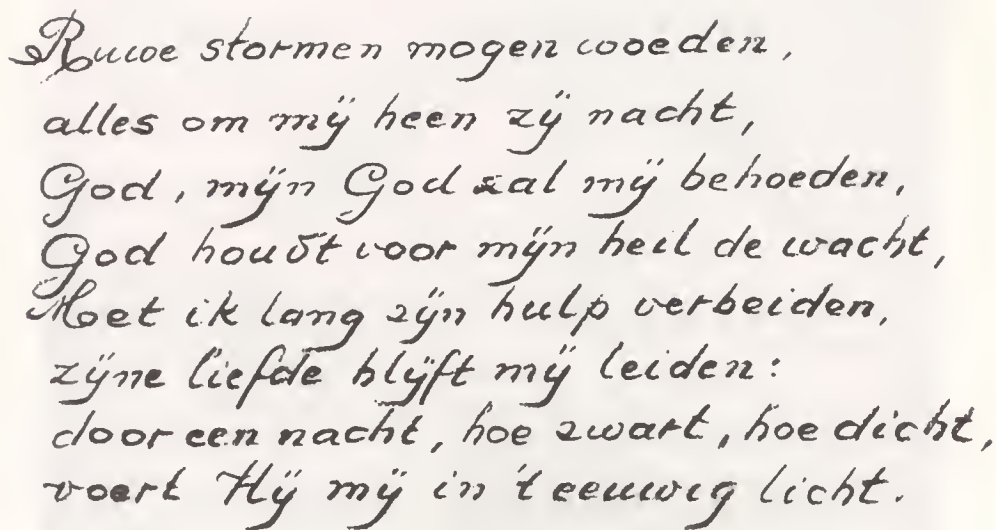 Ruwe stormen mogen woeden,
alles om mij heen zij nacht,
God, mijn God zal mij behoeden,
God houdt voor mijn heil de wacht,
Moet ik lang zijn hulp verbeiden,
zijne liefde blijft mij leiden:
door een nacht, hoe zwart, hoe dicht,
voert Hij mij in 't eeuwig licht.